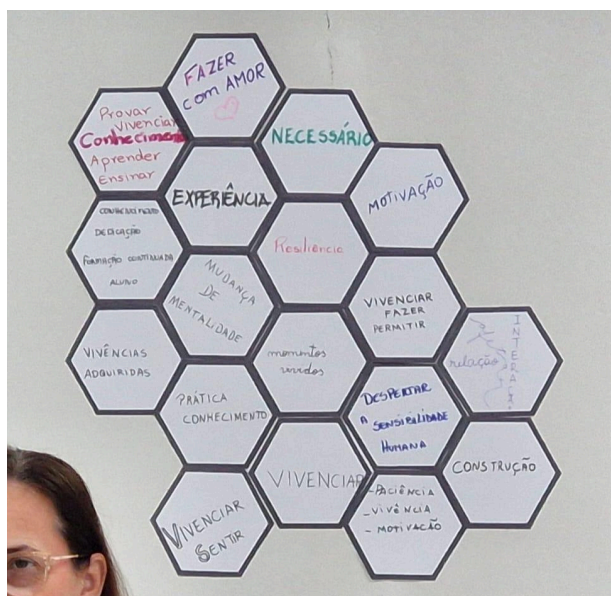 FAZER
COM AMOR
Provar
Vivenciar
Conhecimento
Aprender
Ensinar
NECESSÁRIO
EXPERIÊNCIA
MOTIVAÇÃO
CONHECIMENTO
DEDICAÇÃO
FORMAÇÃO CONTINUADA
ALUNO
Resiliência
MUDANÇA
DE
MENTALIDADE
VIVENCIAR
FAZER
PERMITIR
VIVÊNCIAS
ADQUIRIDAS
momentos
vividos
relação
PRÁTICA
CONHECIMENTO
DESPERTAR
A SENSIBILIDADE
HUMANA
CONSTRUÇÃO
VIVENCIAR
- PACIÊNCIA
- VIVÊNCIA
- MOTIVAÇÃO
VIVENCIAR
SENTIR